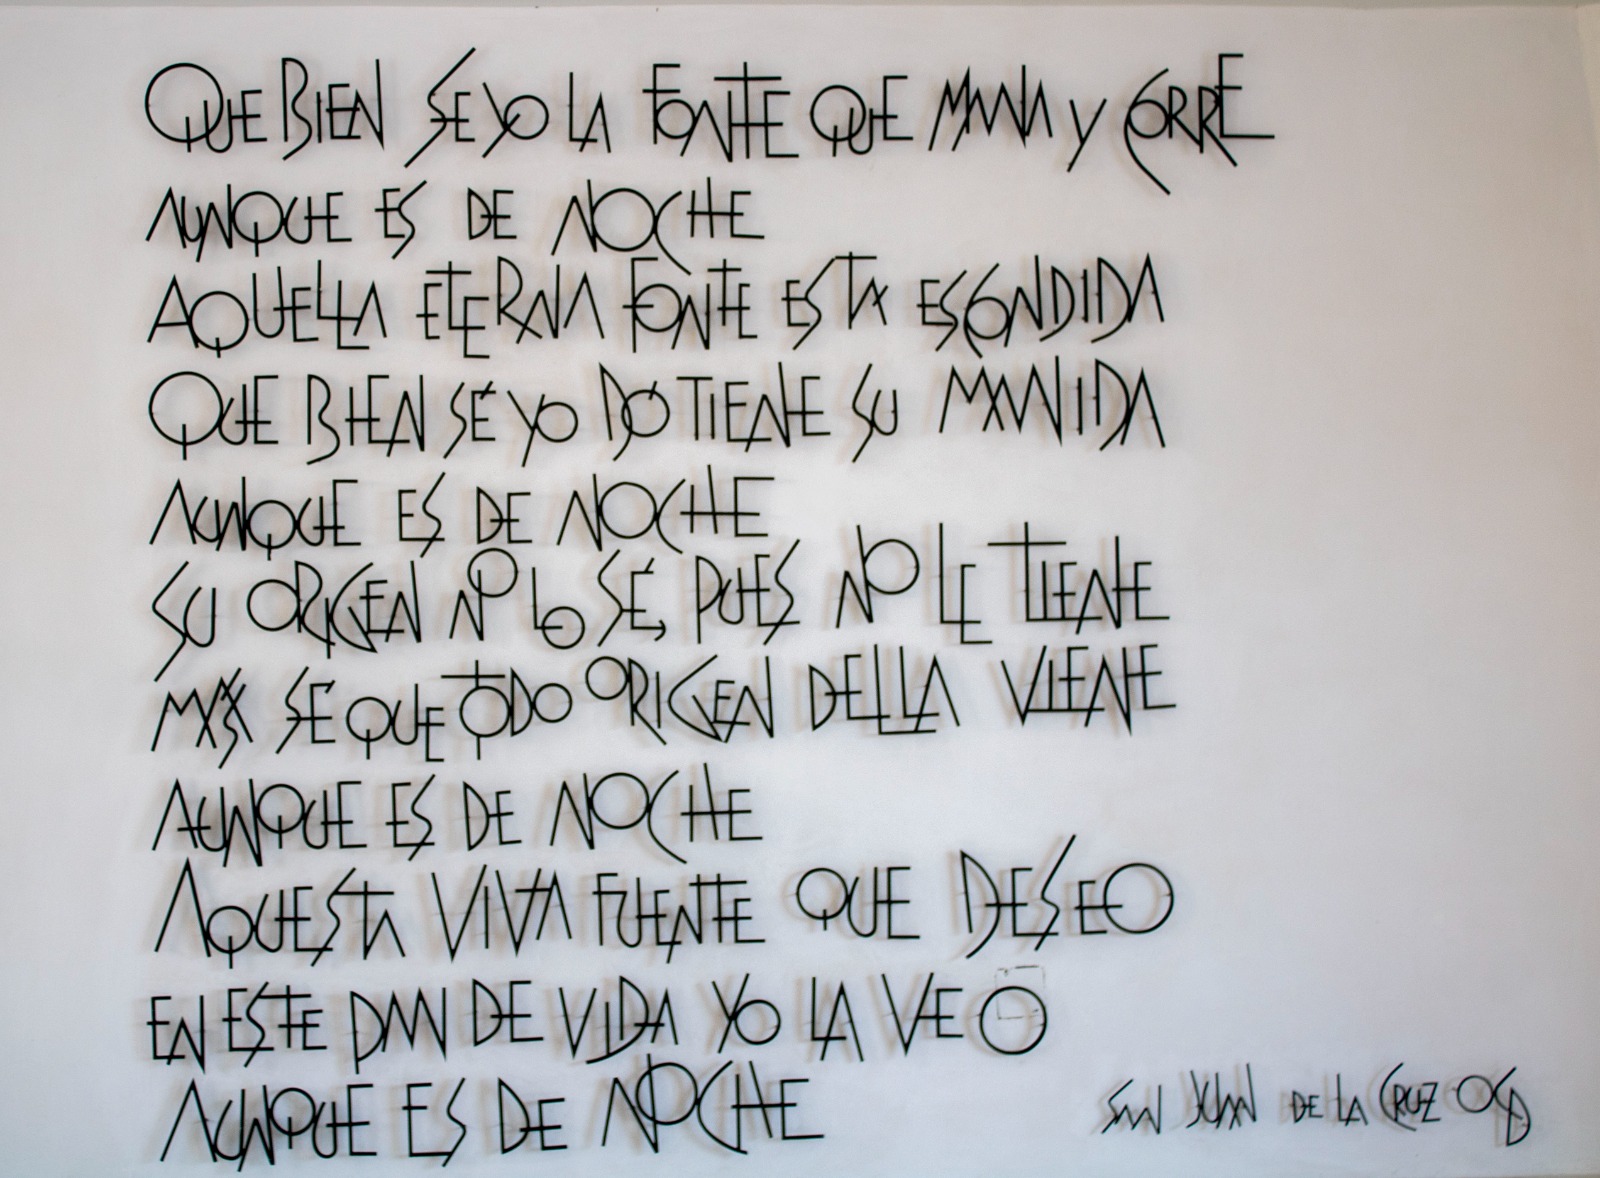 QUE BIEN SE YO LA FONTE QUE MANA Y CORRE
AUNQUE ES DE NOCHE
AQUELLA ETERNA FONTE ESTA ESCONDIDA
QUE BIEN SÉ YO DÓ TIENE SU MANIDA
AUNQUE ES DE NOCHE
SU ORIGEN NO LO SÉ, PUES NO LE TIENE
MAS SÉ QUE TODO ORIGEN DELLA VIENE
AUNQUE ES DE NOCHE
AQUESTA VIVA FUENTE QUE DESEO
EN ESTE PAN DE VIDA YO LA VEO
AUNQUE ES DE NOCHE
SAN JUAN DE LA CRUZ OCD